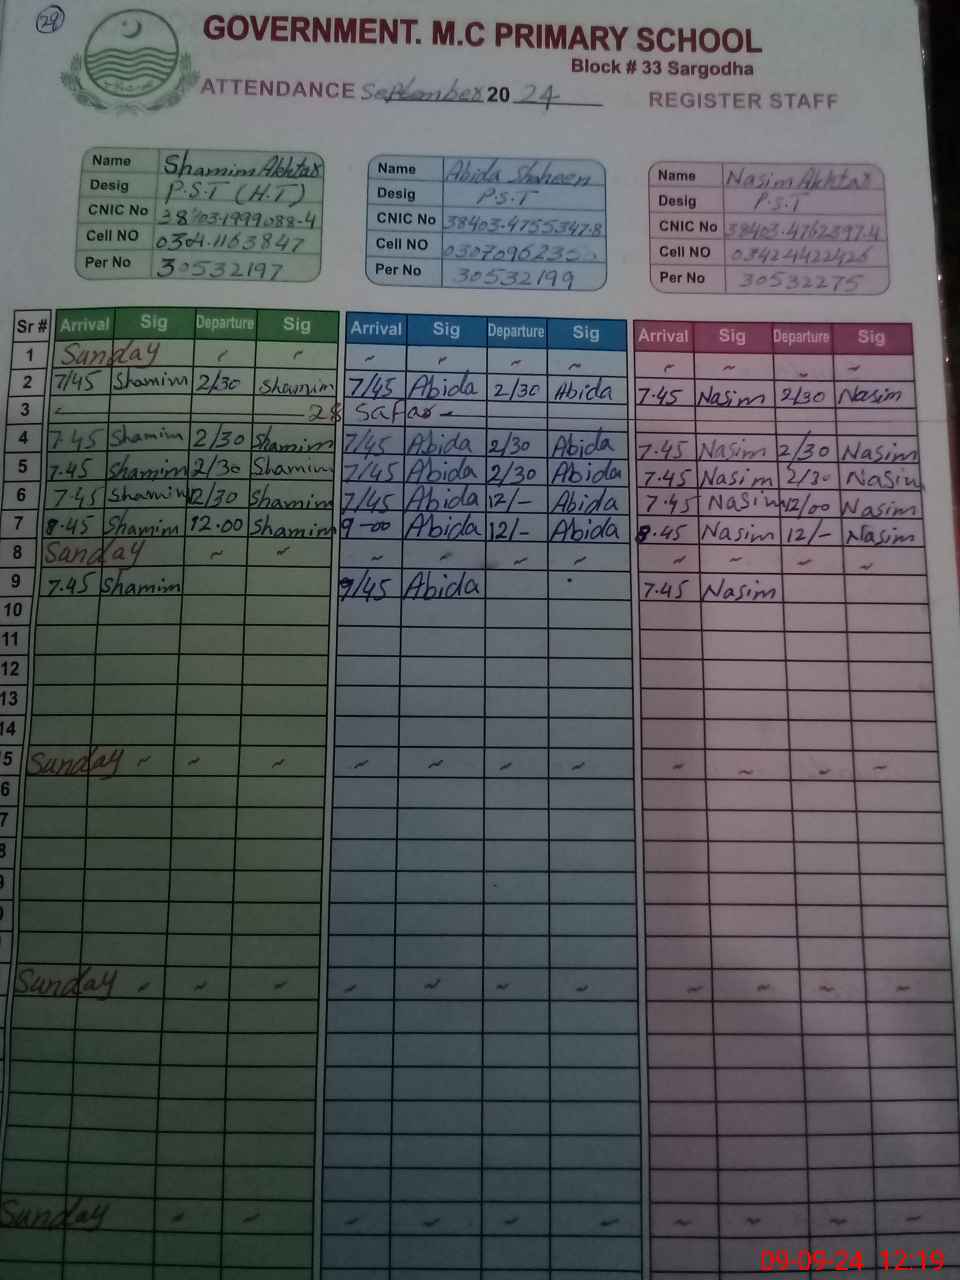 29
GOVERNMENT. M.C PRIMARY SCHOOL
Block # 33 Sargodha
ATTENDANCE September 2024 REGISTER STAFF
Name Shamim Akhtar
Desig P.S.T (H.T)
CNIC No 38403-1999088-4
Cell NO 0304.1163847
Per No 30532197
Name Abida Shaheen
Desig P.S.T
CNIC No 38403-4755347-8
Cell NO
Per No 30532199
Name Nasim Akhtar
Desig P.S.T
CNIC No 38403-4762397-4
Cell NO 03424422426
Per No 30532275
Sr # Arrival Sig Departure Sig Arrival Sig Departure Sig Arrival Sig Departure Sig
1 Sunday ~ ~ ~ ~ ~ ~ ~ ~ ~ ~
2 7/45 Shamim 2/30 Shamim 7/45 Abida 2/30 Abida 7.45 Nasim 2/30 Nasim
3 28 Safar
4 7.45 Shamim 2/30 Shamim 7/45 Abida 2/30 Abida 7.45 Nasim 2/30 Nasim
5 7.45 Shamim 2/30 Shamim 7/45 Abida 2/30 Abida 7.45 Nasim 2/30 Nasim
6 7.45 Shamim 12/30 Shamim 7/45 Abida 12/- Abida 7.45 Nasim 12/00 Nasim
7 8.45 Shamim 12.00 Shamim 9-00 Abida 12/- Abida 8.45 Nasim 12/- Nasim
8 Sunday ~ ~ ~ ~ ~ ~ ~ ~ ~ ~
9 7.45 Shamim 7/45 Abida 7.45 Nasim
10
11
12
13
14
5 Sunday ~ ~ ~ ~ ~ ~ ~ ~ ~ ~ ~
6
7
8
9
0
Sunday ~ ~ ~ ~ ~ ~ ~ ~ ~ ~ ~
Sunday ~ ~ ~ ~ ~ ~ ~ ~ ~ ~
09-09-24 12:19